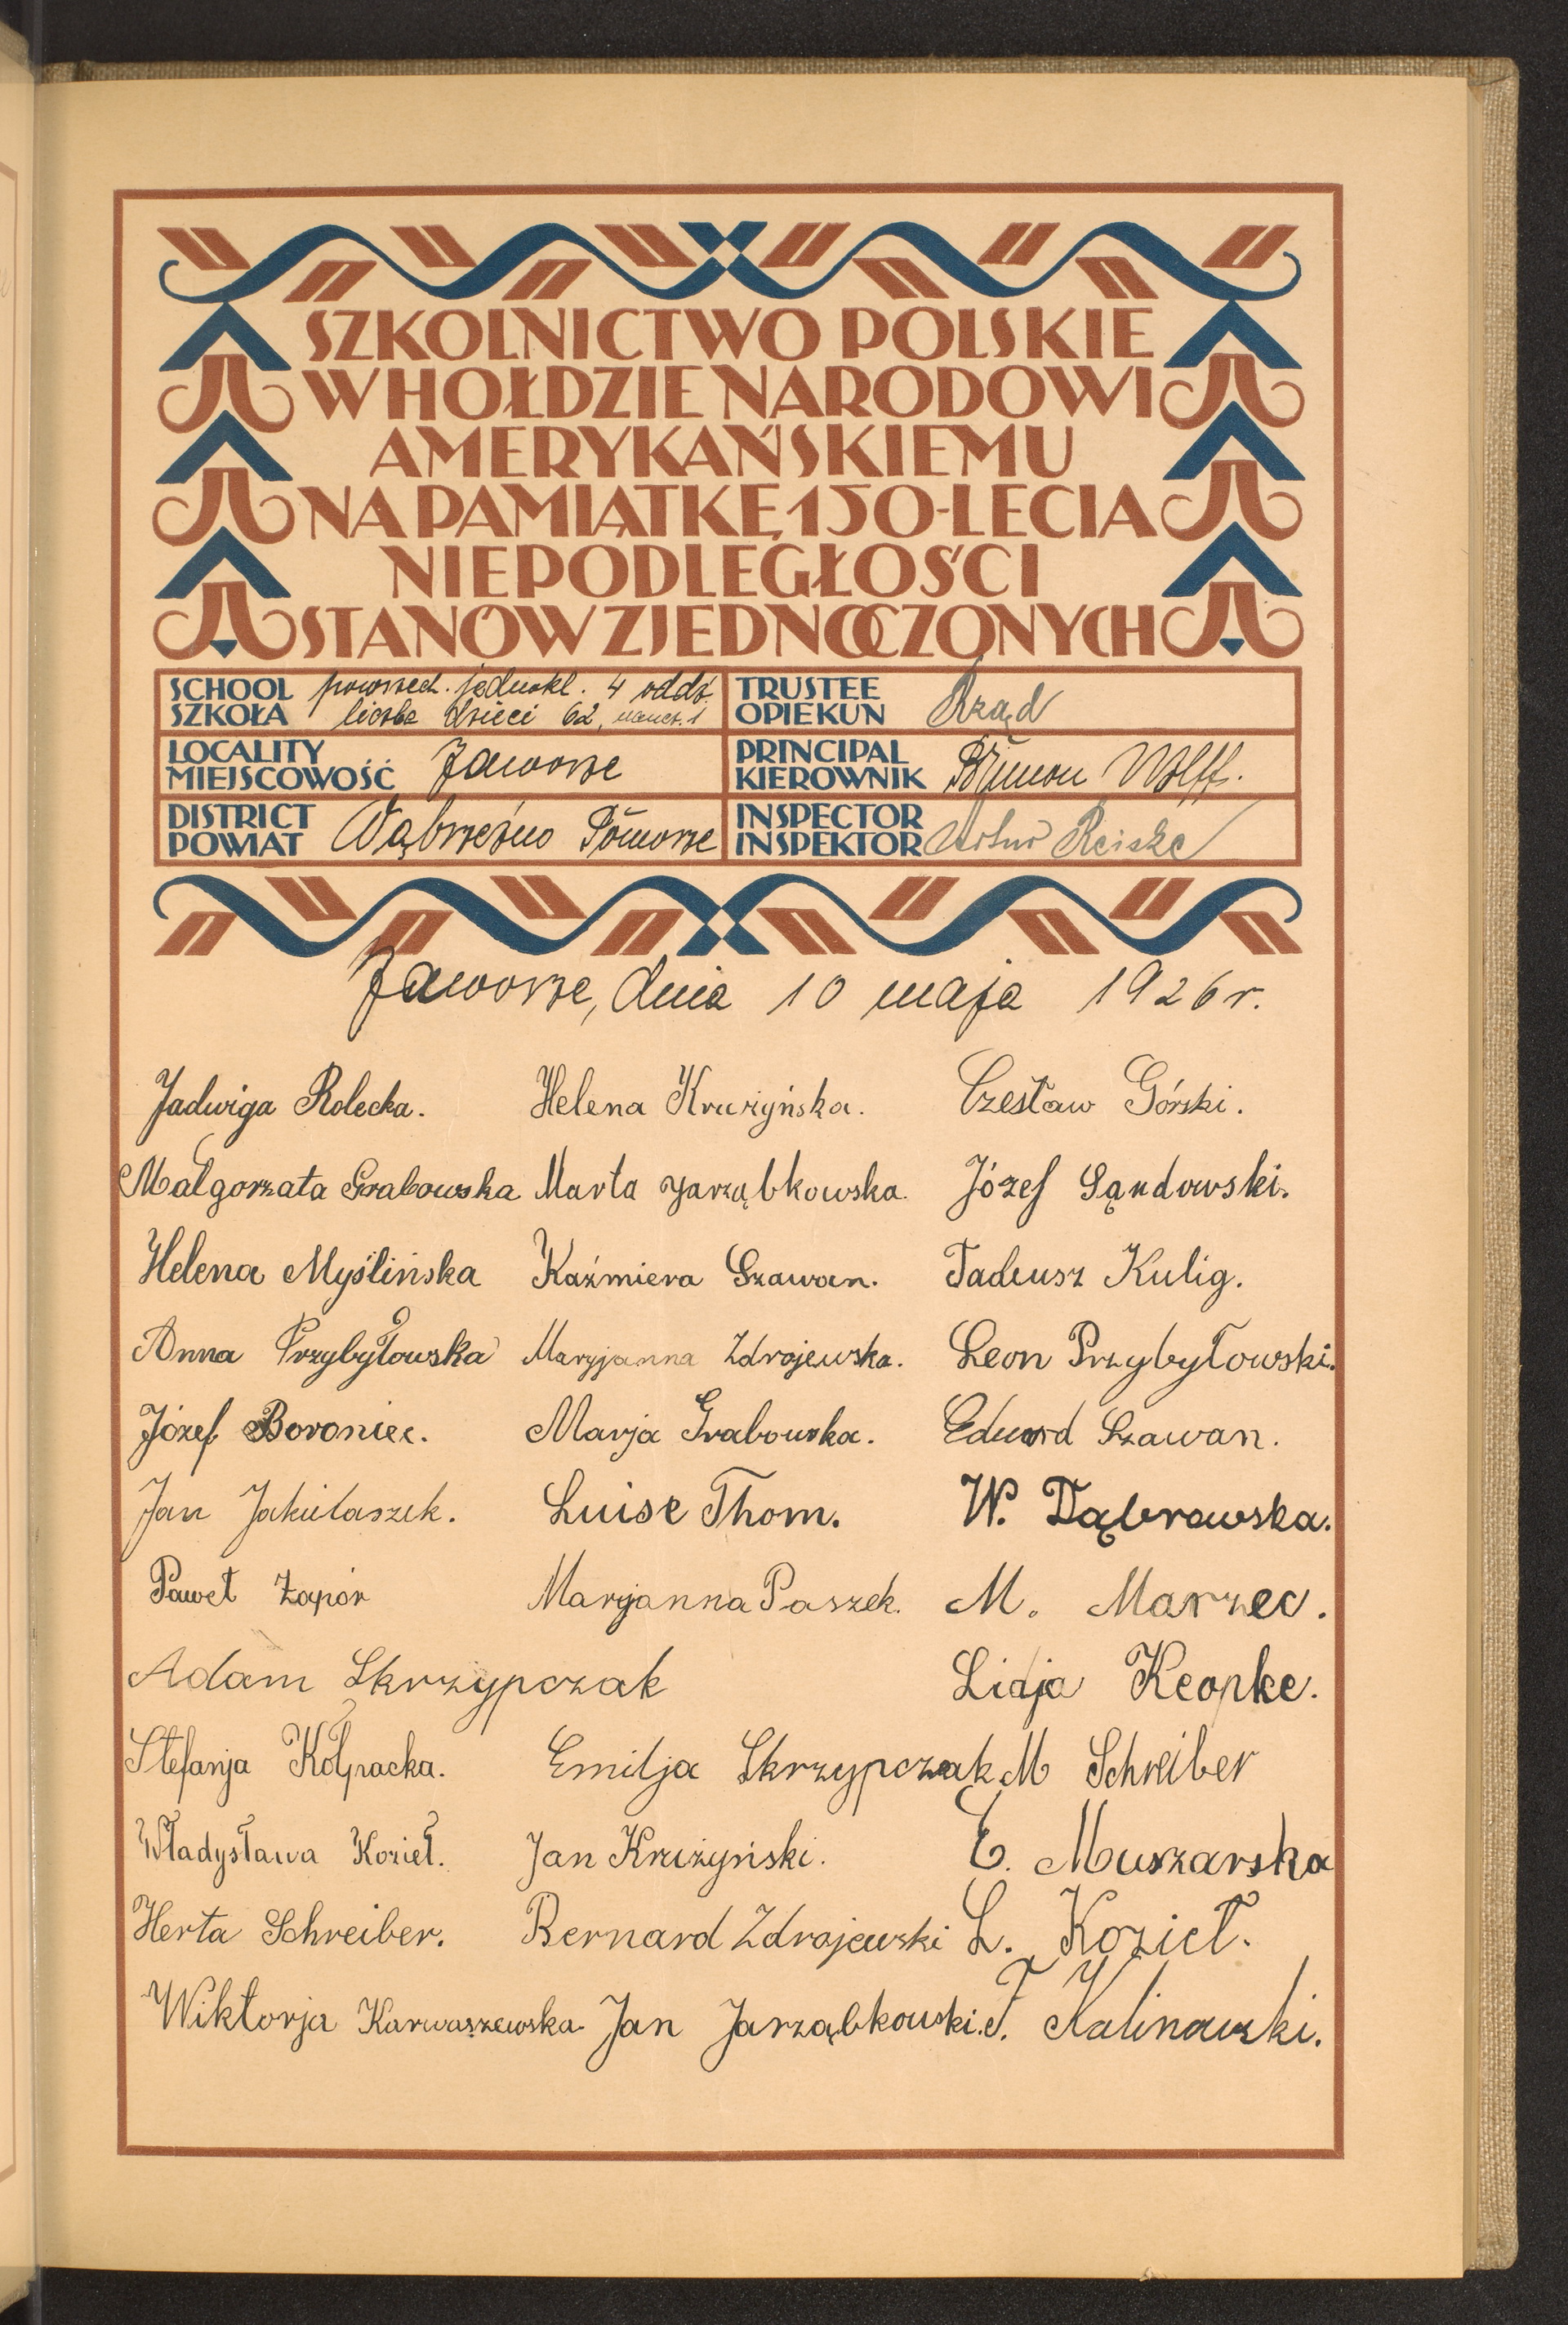 SZKOLNICTWO POLSKIE
W HOŁDZIE NARODOWI
AMERYKAŃSKIEMU
NA PAMIĄTKĘ 150-LECIA
NIEPODLEGŁOŚCI
STANÓW ZJEDNOCZONYCH
SCHOOL SZKOŁA powszech. jednokl. 4 oddz.
liczba dzieci 62, naucz. 1
TRUSTEE OPIEKUN Rząd
LOCALITY MIEJSCOWOŚĆ Jaworze
PRINCIPAL KIEROWNIK Brunon Wolff.
DISTRICT POWIAT Wąbrzeźno Pomorze
INSPECTOR INSPEKTOR Artur Reiske
Jaworze, dnia 10 maja 1926 r.
Jadwiga Rolecka. Helena Krużyńska. Czesław Górski.
Małgorzata Grabowska Marta Jarząbkowska. Józef Sąndowski.
Helena Myślińska Kaźmiera Szawan. Tadeusz Kulig.
Anna Przybyłowska Maryjanna Zdrojewska. Leon Przybyłowski.
Józef Boroniec. Marja Grabowska. Eduard Szawan.
Jan Jakubaszek. Luise Thom. W. Dąbrowska.
Paweł Zapór Maryanna Paszek. M. Marzec.
Adam Skrzypczak Lidja Keopke.
Stefanja Kołpacka. Emilja Skrzypczak M Schreiber
Władysława Kozieł. Jan Krużyński. E. Muszarska
Herta Schreiber. Bernard Zdrojewski L. Kozieł.
Wiktorja Karwaszewska. Jan Jarząbkowski. F. Kalinowski.